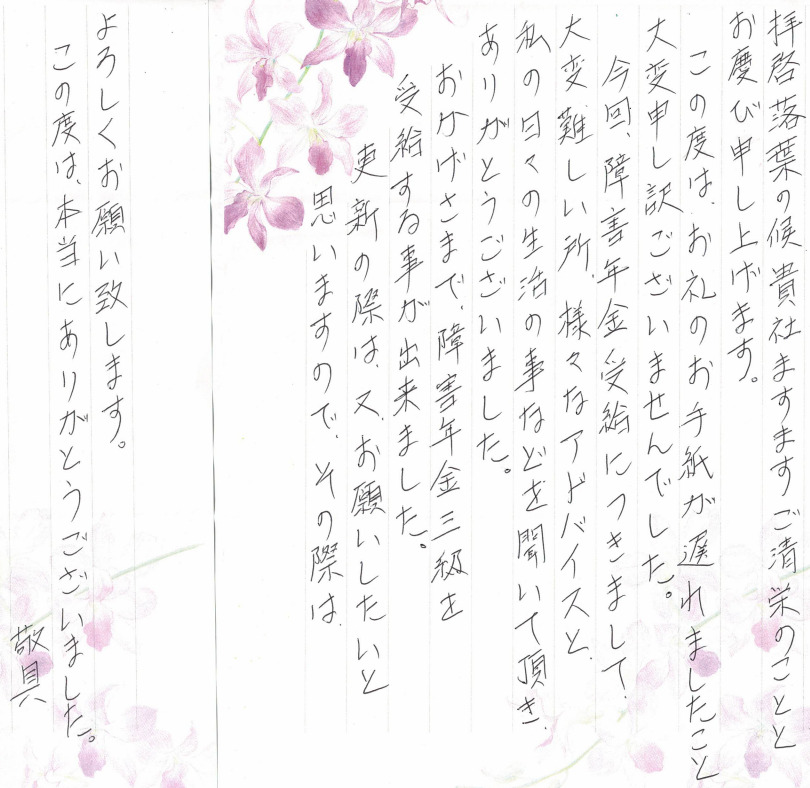 拝啓落葉の候貴社ますますご清栄のことと
お慶び申し上げます。
この度は、お礼のお手紙が遅れましたこと
大変申し訳ございませんでした。
今回、障害年金受給につきまして、
大変難しい所、様々なアドバイスと、
私の日々の生活の事などを聞いて頂き、
ありがとうございました。
おかげさまで、障害年金三級を
受給する事が出来ました。
更新の際は、又、お願いしたいと
思いますので、その際は、
よろしくお願い致します。
この度は、本当にありがとうございました。
敬具